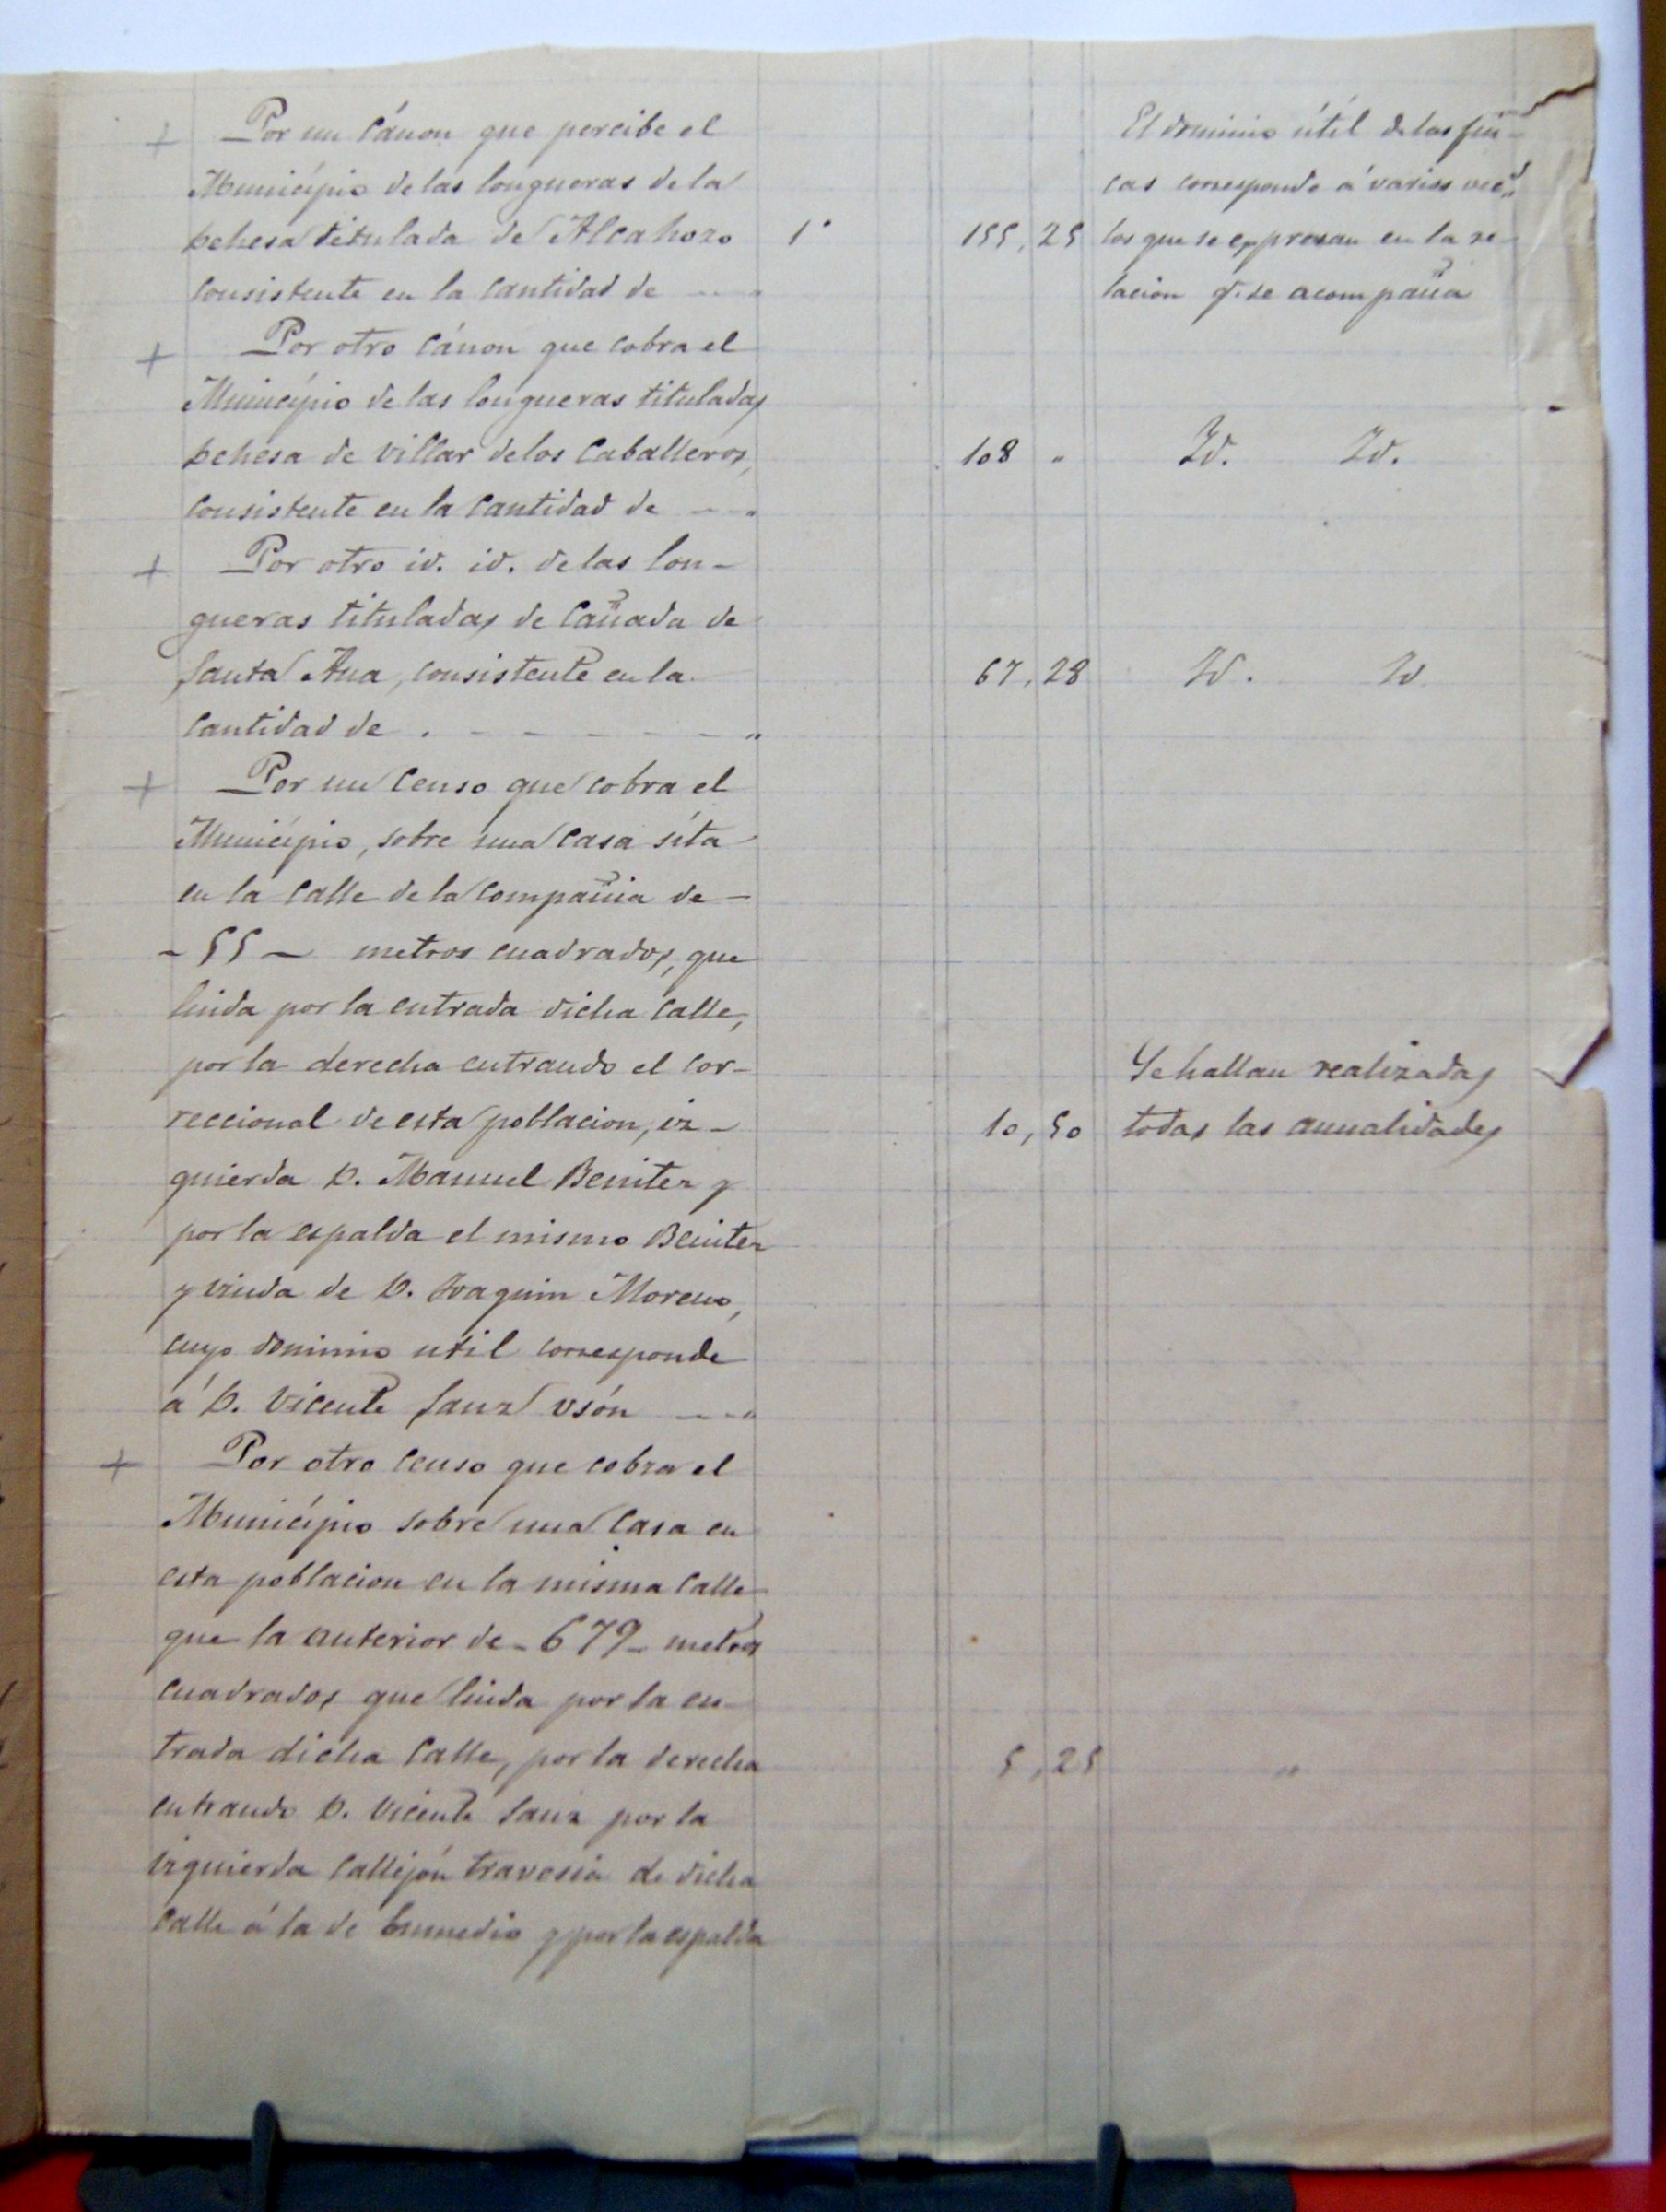 + Por un Cánon que percibe el
Município de las longueras de la
Dehesa titulada de Alcahozo
Consistente en la Cantidad de
1º
155,25
El dominio útil de las fin-
cas corresponde á varios veci
los que se expresan en la re-
lacion q. se acompaña
+ Por otro Cánon que cobra el
Município de las longueras tituladas
Dehesa de Villar de los Caballeros,
Consistente en la Cantidad de
108 "
Id. Id.
+ Por otro id. id. de las lon-
gueras tituladas de Cañada de
Santa Ana, consistente en la
Cantidad de . - - - - - - "
67,28
Id. Id
+ Por un Censo que cobra el
Município, sobre una Casa síta
en la Calle de la Compañia de -
- 55 - metros cuadrados, que
linda por la entrada dicha Calle,
por la derecha entrando el Cor-
reccional de esta poblacion, iz-
quierda D. Manuel Benitez y
por la espalda el mismo Benitez
y viuda de D. Joaquin Moreno,
cuyo dominio util corresponde
á D. Vicente Sanz Usón
10,50
Se hallan realizadas
todas las anualidades
+ Por otro Censo que cobra el
Município sobre una Casa en
esta poblacion en la misma Calle
que la anterior de - 679 - metros
cuadrados que linda por la en-
trada dicha Calle, por la derecha
entrando D. Vicente Sanz por la
izquierda Callejón travesia de dicha
Calle á la de Enmedio y por la espalda
5,25
"